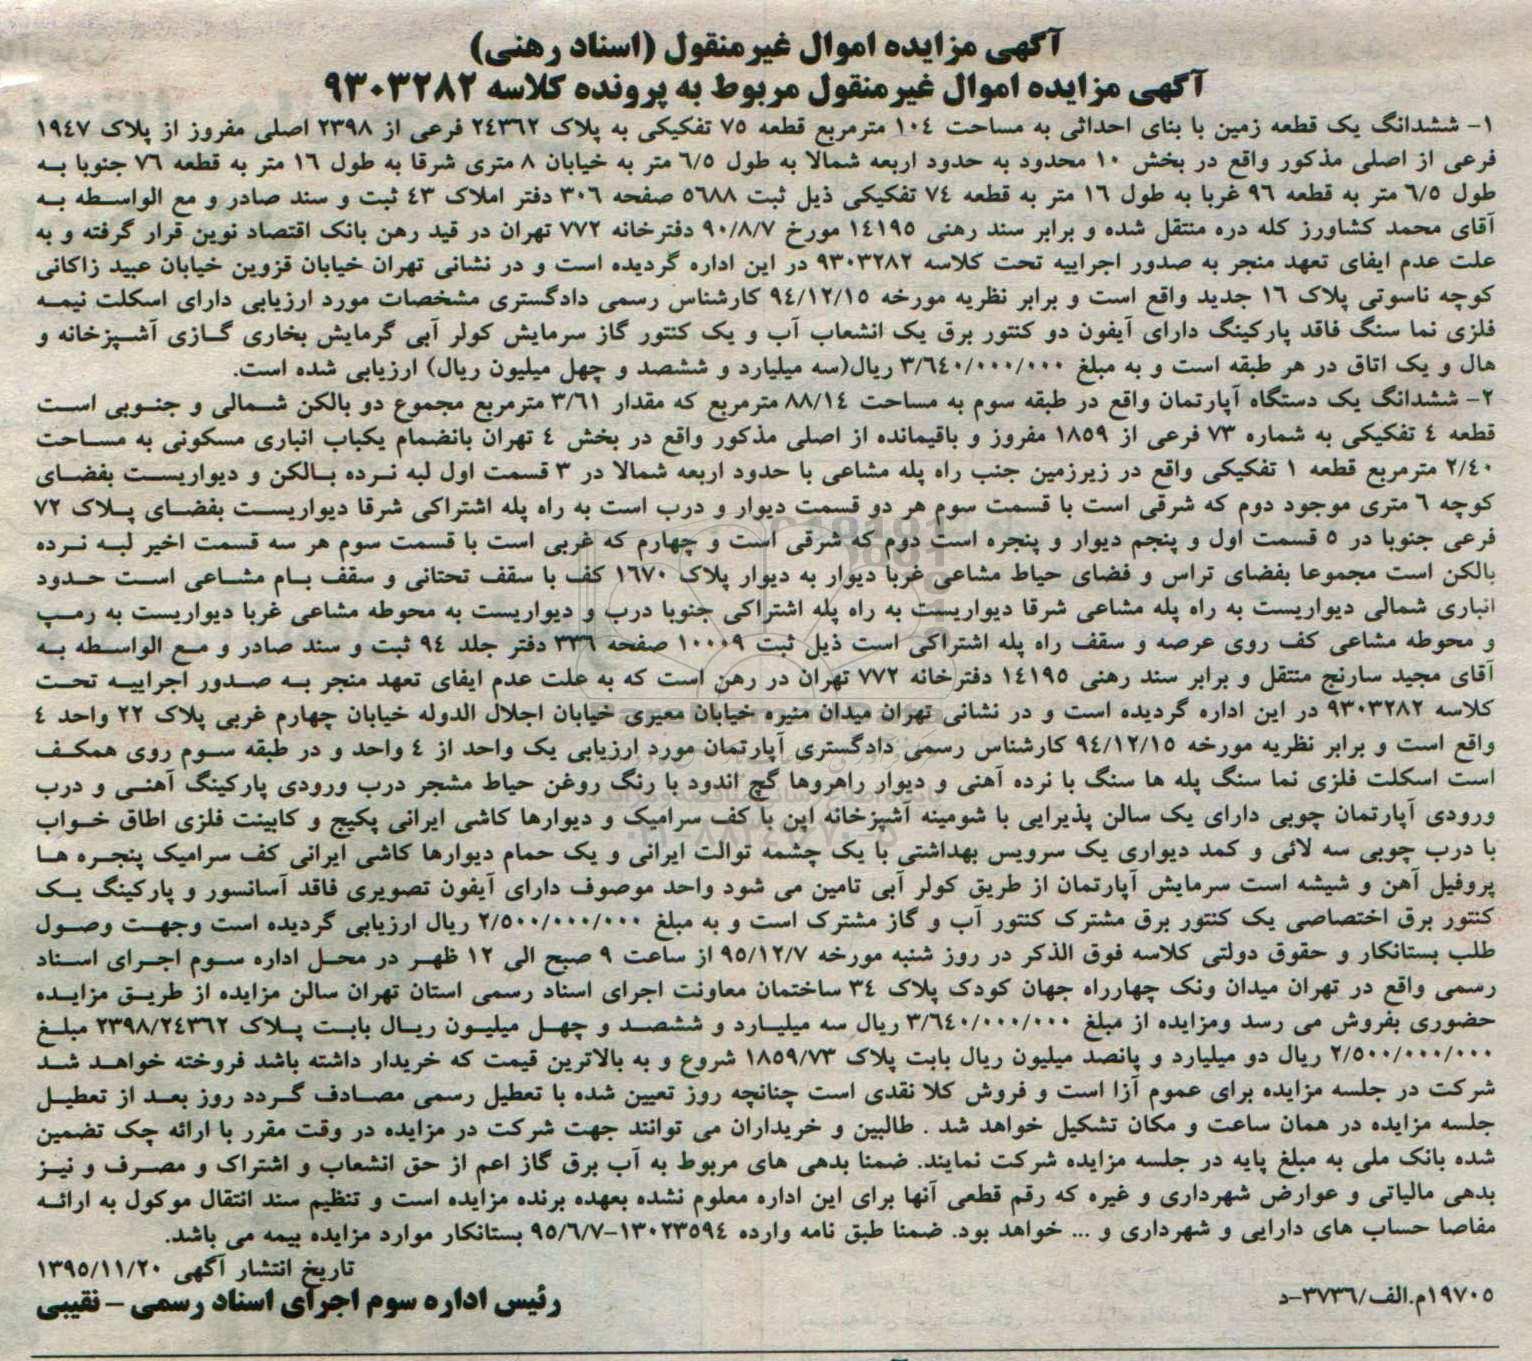 آگهی مزایده اموال غیرمنقول (اسناد رهنی)
آگهی مزایده اموال غیرمنقول مربوط به پرونده کلاسه ۹۳۰۳۲۸۲
۱- ششدانگ یک قطعه زمین با بنای احداثی به مساحت ۱۰۴ مترمربع قطعه ۷۵ تفکیکی به پلاک ۲۴۳۶۲ فرعی از ۲۳۹۸ اصلی مفروز از پلاک ۱۹۴۷
فرعی از اصلی مذکور واقع در بخش ۱۰ محدود به حدود اربعه شمالا به طول ۶/۵ متر به خیابان ۸ متری شرقا به طول ۱۶ متر به قطعه ۷۶ جنوبا به
طول ۶/۵ متر به قطعه ۹۶ غربا به طول ۱۶ متر به قطعه ۷۴ تفکیکی ذیل ثبت ۵۶۸۸ صفحه ۳۰۶ دفتر املاک ۴۳ ثبت و سند صادر و مع الواسطه به
آقای محمد کشاورز کله دره منتقل شده و برابر سند رهنی ۱۴۱۹۵ مورخ ۹۰/۸/۷ دفترخانه ۷۷۲ تهران در قید رهن بانک اقتصاد نوین قرار گرفته و به
علت عدم ایفای تعهد منجر به صدور اجراییه تحت کلاسه ۹۳۰۳۲۸۲ در این اداره گردیده است و در نشانی تهران خیابان قزوین خیابان عبید زاکانی
کوچه ناسوتی پلاک ۱۶ جدید واقع است و برابر نظریه مورخه ۹۴/۱۲/۱۵ کارشناس رسمی دادگستری مشخصات مورد ارزیابی دارای اسکلت نیمه
فلزی نما سنگ فاقد پارکینگ دارای آیفون دو کنتور برق یک انشعاب آب و یک کنتور گاز سرمایش کولر آبی گرمایش بخاری گازی آشپزخانه و
هال و یک اتاق در هر طبقه است و به مبلغ ۳/۶۴۰/۰۰۰/۰۰۰ ریال(سه میلیارد و ششصد و چهل میلیون ریال) ارزیابی شده است.
۲- ششدانگ یک دستگاه آپارتمان واقع در طبقه سوم به مساحت ۸۸/۱۴ مترمربع که مقدار ۳/۶۱ مترمربع مجموع دو بالکن شمالی و جنوبی است
قطعه ۴ تفکیکی به شماره ۷۳ فرعی از ۱۸۵۹ مفروز و باقیمانده از اصلی مذکور واقع در بخش ۴ تهران بانضمام یکباب انباری مسکونی به مساحت
۲/۴۰ مترمربع قطعه ۱ تفکیکی واقع در زیرزمین جنب راه پله مشاعی با حدود اربعه شمالا در ۳ قسمت اول لبه نرده بالکن و دیواریست بفضای
کوچه ۶ متری موجود دوم که شرقی است با قسمت سوم هر دو قسمت دیوار و درب است به راه پله اشتراکی شرقا دیواریست بفضای پلاک ۷۲
فرعی جنوبا در ۵ قسمت اول و پنجم دیوار و پنجره است دوم که شرقی است و چهارم که غربی است با قسمت سوم هر سه قسمت اخیر لبه نرده
بالکن است مجموعا بفضای تراس و فضای حیاط مشاعی غربا دیوار به دیوار پلاک ۱۶۷۰ کف با سقف تحتانی و سقف بام مشاعی است حدود
انباری شمالی دیواریست به راه پله مشاعی شرقا دیواریست به راه پله اشتراکی جنوبا درب و دیواریست به محوطه مشاعی غربا دیواریست به رمپ
و محوطه مشاعی کف روی عرصه و سقف راه پله اشتراکی است ذیل ثبت ۱۰۰۰۹ صفحه ۳۳۶ دفتر جلد ۹۴ ثبت و سند صادر و مع الواسطه به
آقای مجید سارنج منتقل و برابر سند رهنی ۱۴۱۹۵ دفترخانه ۷۷۲ تهران در رهن است که به علت عدم ایفای تعهد منجر به صدور اجراییه تحت
کلاسه ۹۳۰۳۲۸۲ در این اداره گردیده است و در نشانی تهران میدان منیره خیابان معیری خیابان اجلال الدوله خیابان چهارم غربی پلاک ۲۲ واحد ۴
واقع است و برابر نظریه مورخه ۹۴/۱۲/۱۵ کارشناس رسمی دادگستری آپارتمان مورد ارزیابی یک واحد از ۴ واحد و در طبقه سوم روی همکف
است اسکلت فلزی نما سنگ پله ها سنگ با نرده آهنی و دیوار راهروها گچ اندود با رنگ روغن حیاط مشجر درب ورودی پارکینگ آهنی و درب
ورودی آپارتمان چوبی دارای یک سالن پذیرایی با شومینه آشپزخانه اپن با کف سرامیک و دیوارها کاشی ایرانی پکیج و کابینت فلزی اطاق خواب
با درب چوبی سه لائی و کمد دیواری یک سرویس بهداشتی با یک چشمه توالت ایرانی و یک حمام دیوارها کاشی ایرانی کف سرامیک پنجره ها
پروفیل آهن و شیشه است سرمایش آپارتمان از طریق کولر آبی تامین می شود واحد موصوف دارای آیفون تصویری فاقد آسانسور و پارکینگ یک
کنتور برق اختصاصی یک کنتور برق مشترک کنتور آب و گاز مشترک است و به مبلغ ۲/۵۰۰/۰۰۰/۰۰۰ ریال ارزیابی گردیده است وجهت وصول
طلب بستانکار و حقوق دولتی کلاسه فوق الذکر در روز شنبه مورخه ۹۵/۱۲/۷ از ساعت ۹ صبح الی ۱۲ ظهر در محل اداره سوم اجرای اسناد
رسمی واقع در تهران میدان ونک چهارراه جهان کودک پلاک ۳۴ ساختمان معاونت اجرای اسناد رسمی استان تهران سالن مزایده از طریق مزایده
حضوری بفروش می رسد ومزایده از مبلغ ۳/۶۴۰/۰۰۰/۰۰۰ ریال سه میلیارد و ششصد و چهل میلیون ریال بابت پلاک ۲۳۹۸/۲۴۳۶۲ مبلغ
۲/۵۰۰/۰۰۰/۰۰۰ ریال دو میلیارد و پانصد میلیون ریال بابت پلاک ۱۸۵۹/۷۳ شروع و به بالاترین قیمت که خریدار داشته باشد فروخته خواهد شد
شرکت در جلسه مزایده برای عموم آزا است و فروش کلا نقدی است چنانچه روز تعیین شده با تعطیل رسمی مصادف گردد روز بعد از تعطیل
جلسه مزایده در همان ساعت و مکان تشکیل خواهد شد . طالبین و خریداران می توانند جهت شرکت در مزایده در وقت مقرر با ارائه چک تضمین
شده بانک ملی به مبلغ پایه در جلسه مزایده شرکت نمایند. ضمنا بدهی های مربوط به آب برق گاز اعم از حق انشعاب و اشتراک و مصرف و نیز
بدهی مالیاتی و عوارض شهرداری و غیره که رقم قطعی آنها برای این اداره معلوم نشده بعهده برنده مزایده است و تنظیم سند انتقال موکول به ارائه
مفاصا حساب های دارایی و شهرداری و ... خواهد بود. ضمنا طبق نامه وارده ۱۳۰۲۳۵۹۴-۹۵/۶/۷ بستانکار موارد مزایده بیمه می باشد.
تاریخ انتشار آگهی ۱۳۹۵/۱۱/۲۰
۱۹۷۰۵م.الف/۳۷۳۶-د
رئیس اداره سوم اجرای اسناد رسمی - نقیبی